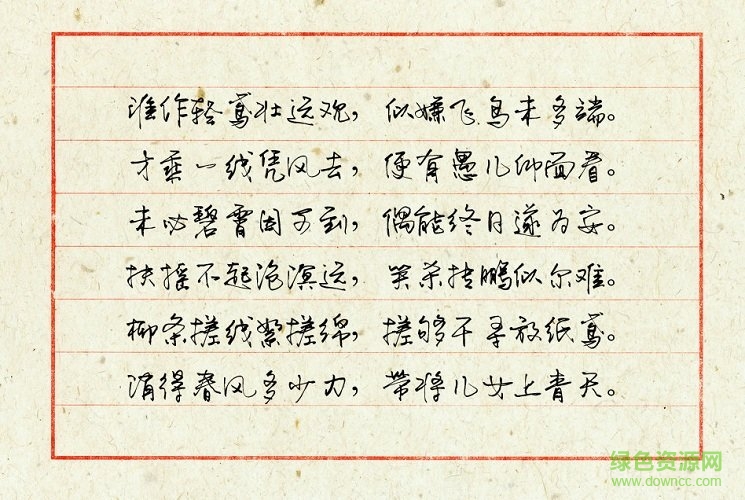 谁作轻鸢壮远观，似嫌飞鸟未多端。
才乘一线凭风去，便有愚儿仰面看。
未必碧霄因可到，偶能终日遂为安。
扶摇不起沧溟远，笑杀抟鹏似尔难。
柳条搓线絮搓绵，搓够千寻放纸鸢。
消得春风多少力，带将儿女上青天。
绿色资源网
www.downcc.com